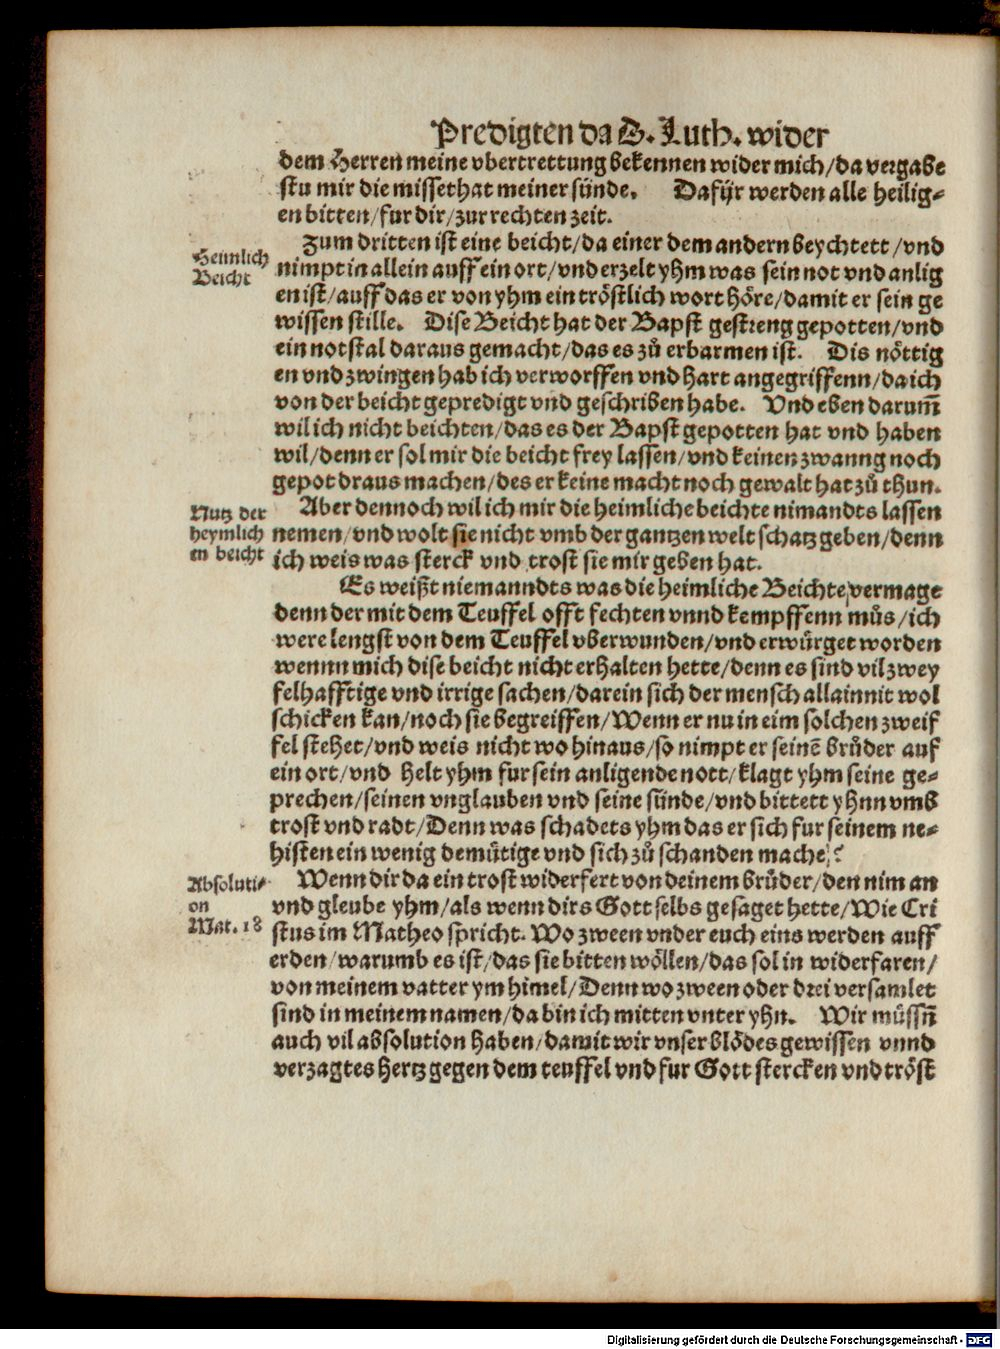 Predigten da D. Luth. wider
dem Herren meine vbertrettung bekennen wider mich/da vergabe
stu mir die missethat meiner sünde. Dafÿr werden alle heilig⸗
en bitten/fur dir/zur rechten zeit.
Heimlich
Beicht
Zum dritten ist eine beicht/da einer dem andern beychtett/vnd
nimpt in allein auff ein ort/vnd erzelt yhm was sein not vnd anlig
en ist/auff das er von yhm ein tröstlich wort höre/damit er sein ge
wissen stille. Dise Beicht hat der Bapst gestreng gepotten/vnd
ein notstal daraus gemacht/das es zů erbarmen ist. Dis nöttig
en vnd zwingen hab ich verworffen vnd hart angegriffenn/da ich
von der beicht gepredigt vnd geschriben habe. Vnd eben darum̄
wil ich nicht beichten/das es der Bapst gepotten hat vnd haben
wil/denn er sol mir die beicht frey lassen/vnd keinen zwanng noch
gepot draus machen/des er keine macht noch gewalt hat zů thun.
Nutz der
heymlich
en beicht
Aber dennoch wil ich mir die heimliche beichte nimandts lassen
nemen/vnd wolt sie nicht vmb der gantzen welt schatz geben/denn
ich weis was sterck vnd trost sie mir geben hat.
Es weißt niemanndts was die heimliche Beichte vermage
denn der mit dem Teuffel offt fechten vnnd kempffenn můs/ich
were lengst von dem Teuffel vberwunden/vnd erwürget worden
wennn mich dise beicht nicht erhalten hette/denn es sind vil zwey
felhafftige vnd irrige sachen/darein sich der mensch allainnit wol
schicken kan/noch sie begreiffen/Wenn er nu in eim solchen zweif
fel stehet/vnd weis nicht wo hinaus/so nimpt er seinē brůder auf
ein ort/vnd helt yhm fur sein anligende nott/klagt yhm seine ge⸗
prechen/seinen vnglauben vnd seine sünde/vnd bittett yhnn vmb
trost vnd radt/Denn was schadets yhm das er sich fur seinem ne⸗
histen ein wenig demütige vnd sich zů schanden mache?
Absoluti⸗
on
Mat. 18
Wenn dir da ein trost widerfert von deinem brůder/den nim an
vnd gleube yhm/als wenn dirs Gott selbs gesaget hette/Wie Cri
stus im Matheo spricht. Wo zween vnder euch eins werden auff
erden/warumb es ist/das sie bitten wöllen/das sol in widerfaren/
von meinem vatter ym himel/Denn wo zween oder drei versamlet
sind in meinem namen/da bin ich mitten vnter yhn. Wir müssn̄
auch vil absolution haben/damit wir vnser blödes gewissen vnnd
verzagtes hertz gegen dem teuffel vnd fur Gott stercken vnd tröst
Digitalisierung gefördert durch die Deutsche Forschungsgemeinschaft - DFG